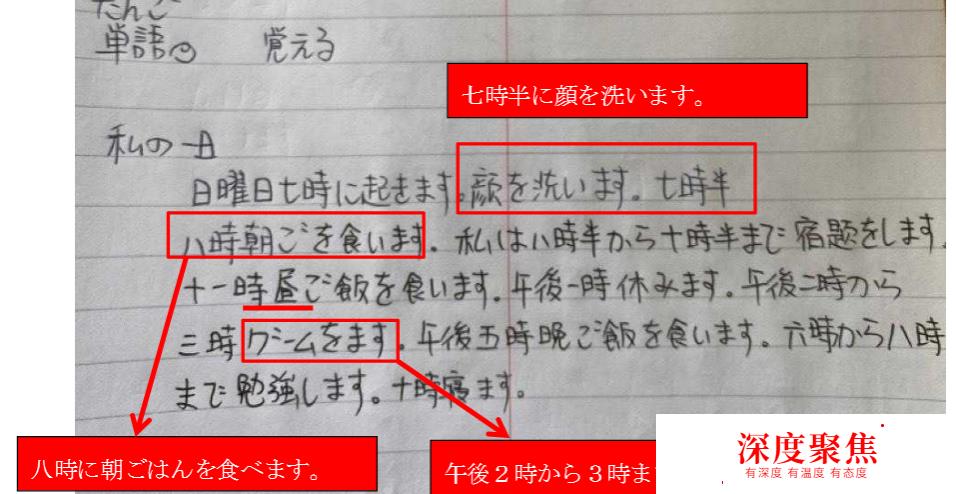 たんご
単語の 覚える
七時半に顔を洗います。
私の一日
日曜日七時に起きます。顔を洗います。七時半
八時朝ごを食います。私は八時半から十時半まで宿題をします
十一時昼ご飯を食います。午後一時休みます。午後二時から
三時ゲームをます。午後五時晩ご飯を食います。六時から八時
まで勉強します。十時寝ます。
八時に朝ごはんを食べます。
午後２時から３時ま
深度聚焦
有深度 有温度 有态度